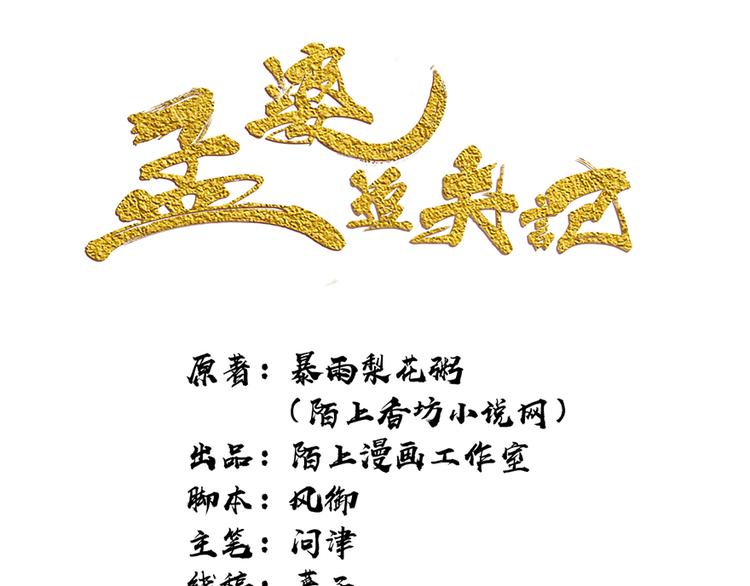 孟婆追夫记
原著：暴雨梨花粥
（陌上香坊小说网）
出品：陌上漫画工作室
脚本：风御
主笔：问津